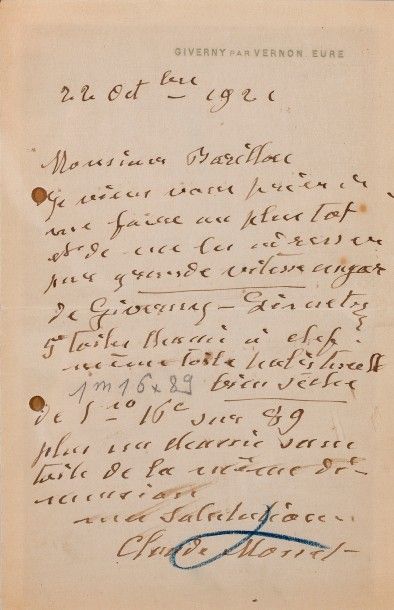 GIVERNY PAR VERNON. EURE
22 Octbre - 1921
Monsieur Barillon
Je viens vous prier de
me faire au plus tôt
et de me les adresser
par grande vitesse en gare
de Giverny - Limetz
5 toiles chassis à clef
même toile
1m16 x 89 bien sèche
de 1mo 16c sur 89
plus un chassis sans
toile de la même di-
mension
mes salutations
Claude Monet